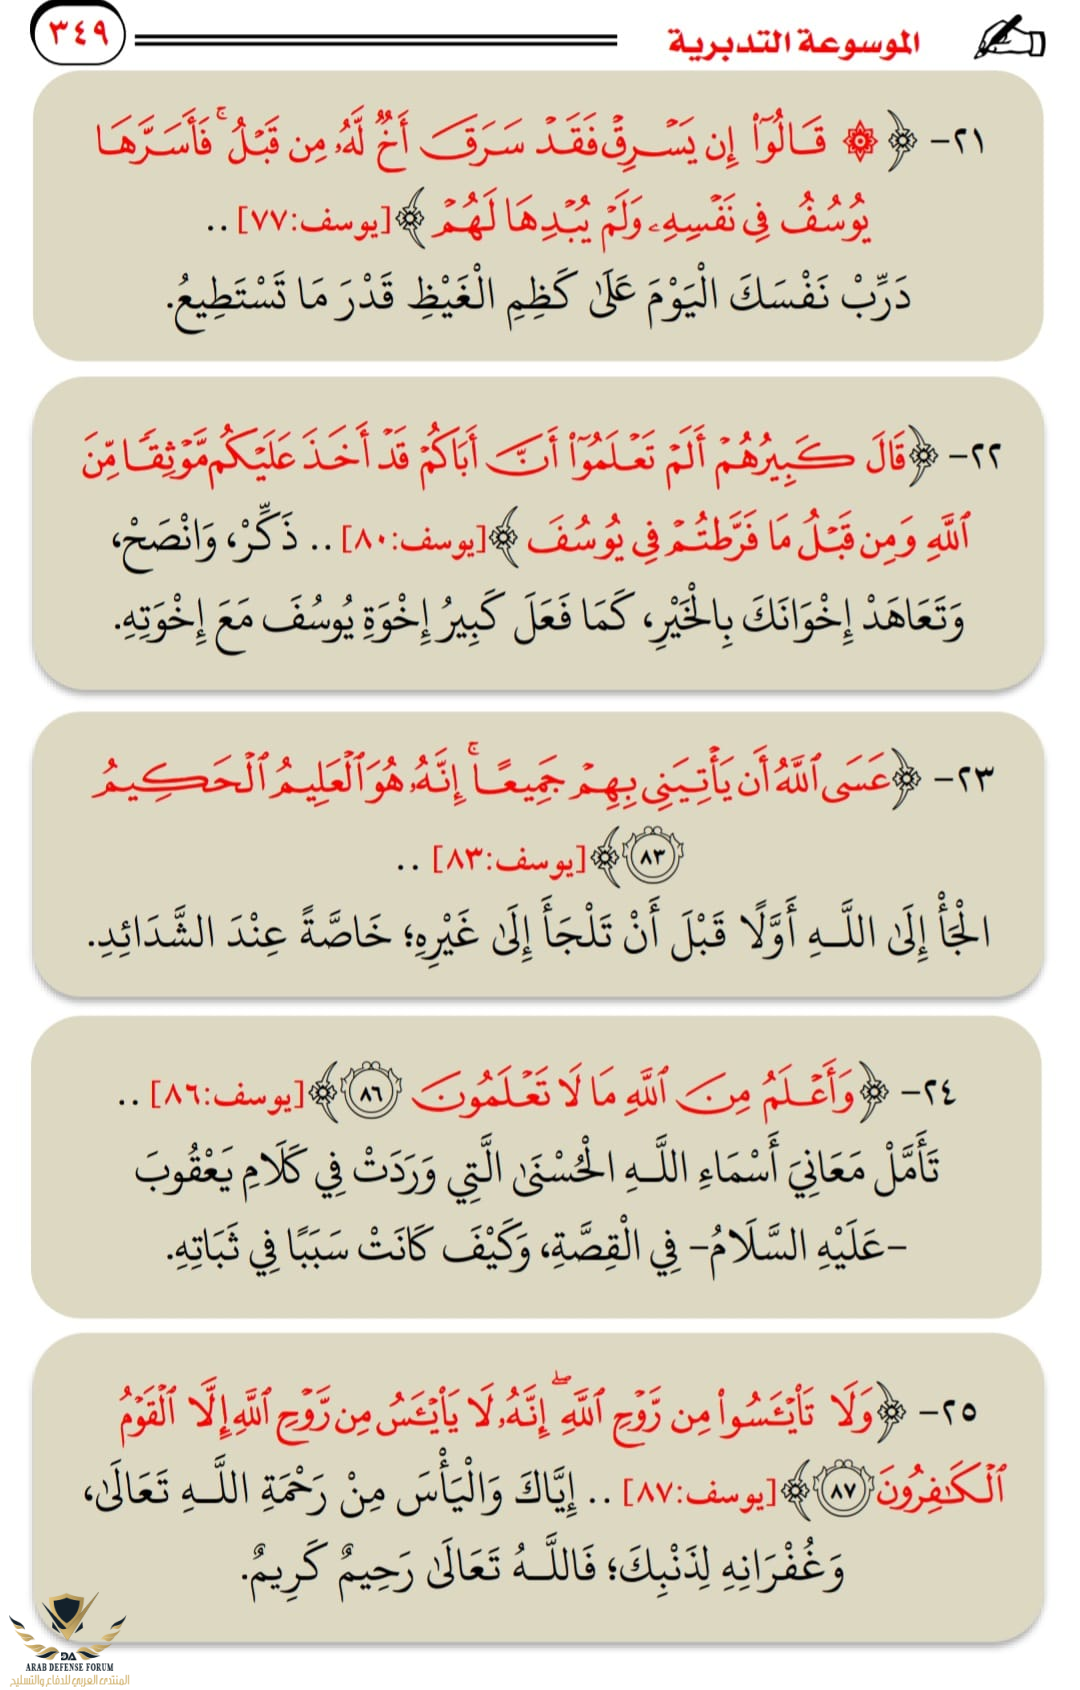 الموسوعة التدبرية
٣٤٩
٢١- ﴿ ۞ قَالُوٓا۟ إِن يَسْرِقْ فَقَدْ سَرَقَ أَخٌ لَّهُۥ مِن قَبْلُ ۚ فَأَسَرَّهَا
يُوسُفُ فِى نَفْسِهِۦ وَلَمْ يُبْدِهَا لَهُمْ ﴾ [يوسف:٧٧] ..
دَرِّبْ نَفْسَكَ الْيَوْمَ عَلَىٰ كَظِمِ الْغَيْظِ قَدْرَ مَا تَسْتَطِيعُ.
٢٢- ﴿ قَالَ كَبِيرُهُمْ أَلَمْ تَعْلَمُوٓا۟ أَنَّ أَبَاكُمْ قَدْ أَخَذَ عَلَيْكُم مَّوْثِقًا مِّنَ
ٱللَّهِ وَمِن قَبْلُ مَا فَرَّطتُمْ فِى يُوسُفَ ﴾ [يوسف:٨٠] .. ذَكِّرْ، وَانْصَحْ،
وَتَعَاهَدْ إِخْوَانَكَ بِالْخَيْرِ، كَمَا فَعَلَ كَبِيرُ إِخْوَةِ يُوسُفَ مَعَ إِخْوَتِهِ.
٢٣- ﴿ عَسَى ٱللَّهُ أَن يَأْتِيَنِى بِهِمْ جَمِيعًا ۚ إِنَّهُۥ هُوَ ٱلْعَلِيمُ ٱلْحَكِيمُ
٨٣ ﴾ [يوسف:٨٣] ..
الْجَأْ إِلَىٰ اللَّـهِ أَوَّلًا قَبْلَ أَنْ تَلْجَأَ إِلَىٰ غَيْرِهِ؛ خَاصَّةً عِنْدَ الشَّدَائِدِ.
٢٤- ﴿ وَأَعْلَمُ مِنَ ٱللَّهِ مَا لَا تَعْلَمُونَ ٨٦ ﴾ [يوسف:٨٦] ..
تَأَمَّلْ مَعَانِيَ أَسْمَاءِ اللَّـهِ الْحُسْنَىٰ الَّتِي وَرَدَتْ فِي كَلَامِ يَعْقُوبَ
-عَلَيْهِ السَّلَامُ- فِي الْقِصَّةِ، وَكَيْفَ كَانَتْ سَبَبًا فِي ثَبَاتِهِ.
٢٥- ﴿ وَلَا تَا۟يْـَٔسُوا۟ مِن رَّوْحِ ٱللَّهِ ۖ إِنَّهُۥ لَا يَا۟يْـَٔسُ مِن رَّوْحِ ٱللَّهِ إِلَّا ٱلْقَوْمُ
ٱلْكَـٰفِرُونَ ٨٧ ﴾ [يوسف:٨٧] .. إِيَّاكَ وَالْيَأْسَ مِنْ رَحْمَةِ اللَّـهِ تَعَالَىٰ،
وَغُفْرَانِهِ لِذَنْبِكَ؛ فَاللَّـهُ تَعَالَىٰ رَحِيمٌ كَرِيمٌ.
DA
ARAB DEFENSE FORUM
المنتدى العربي للدفاع والتسليح